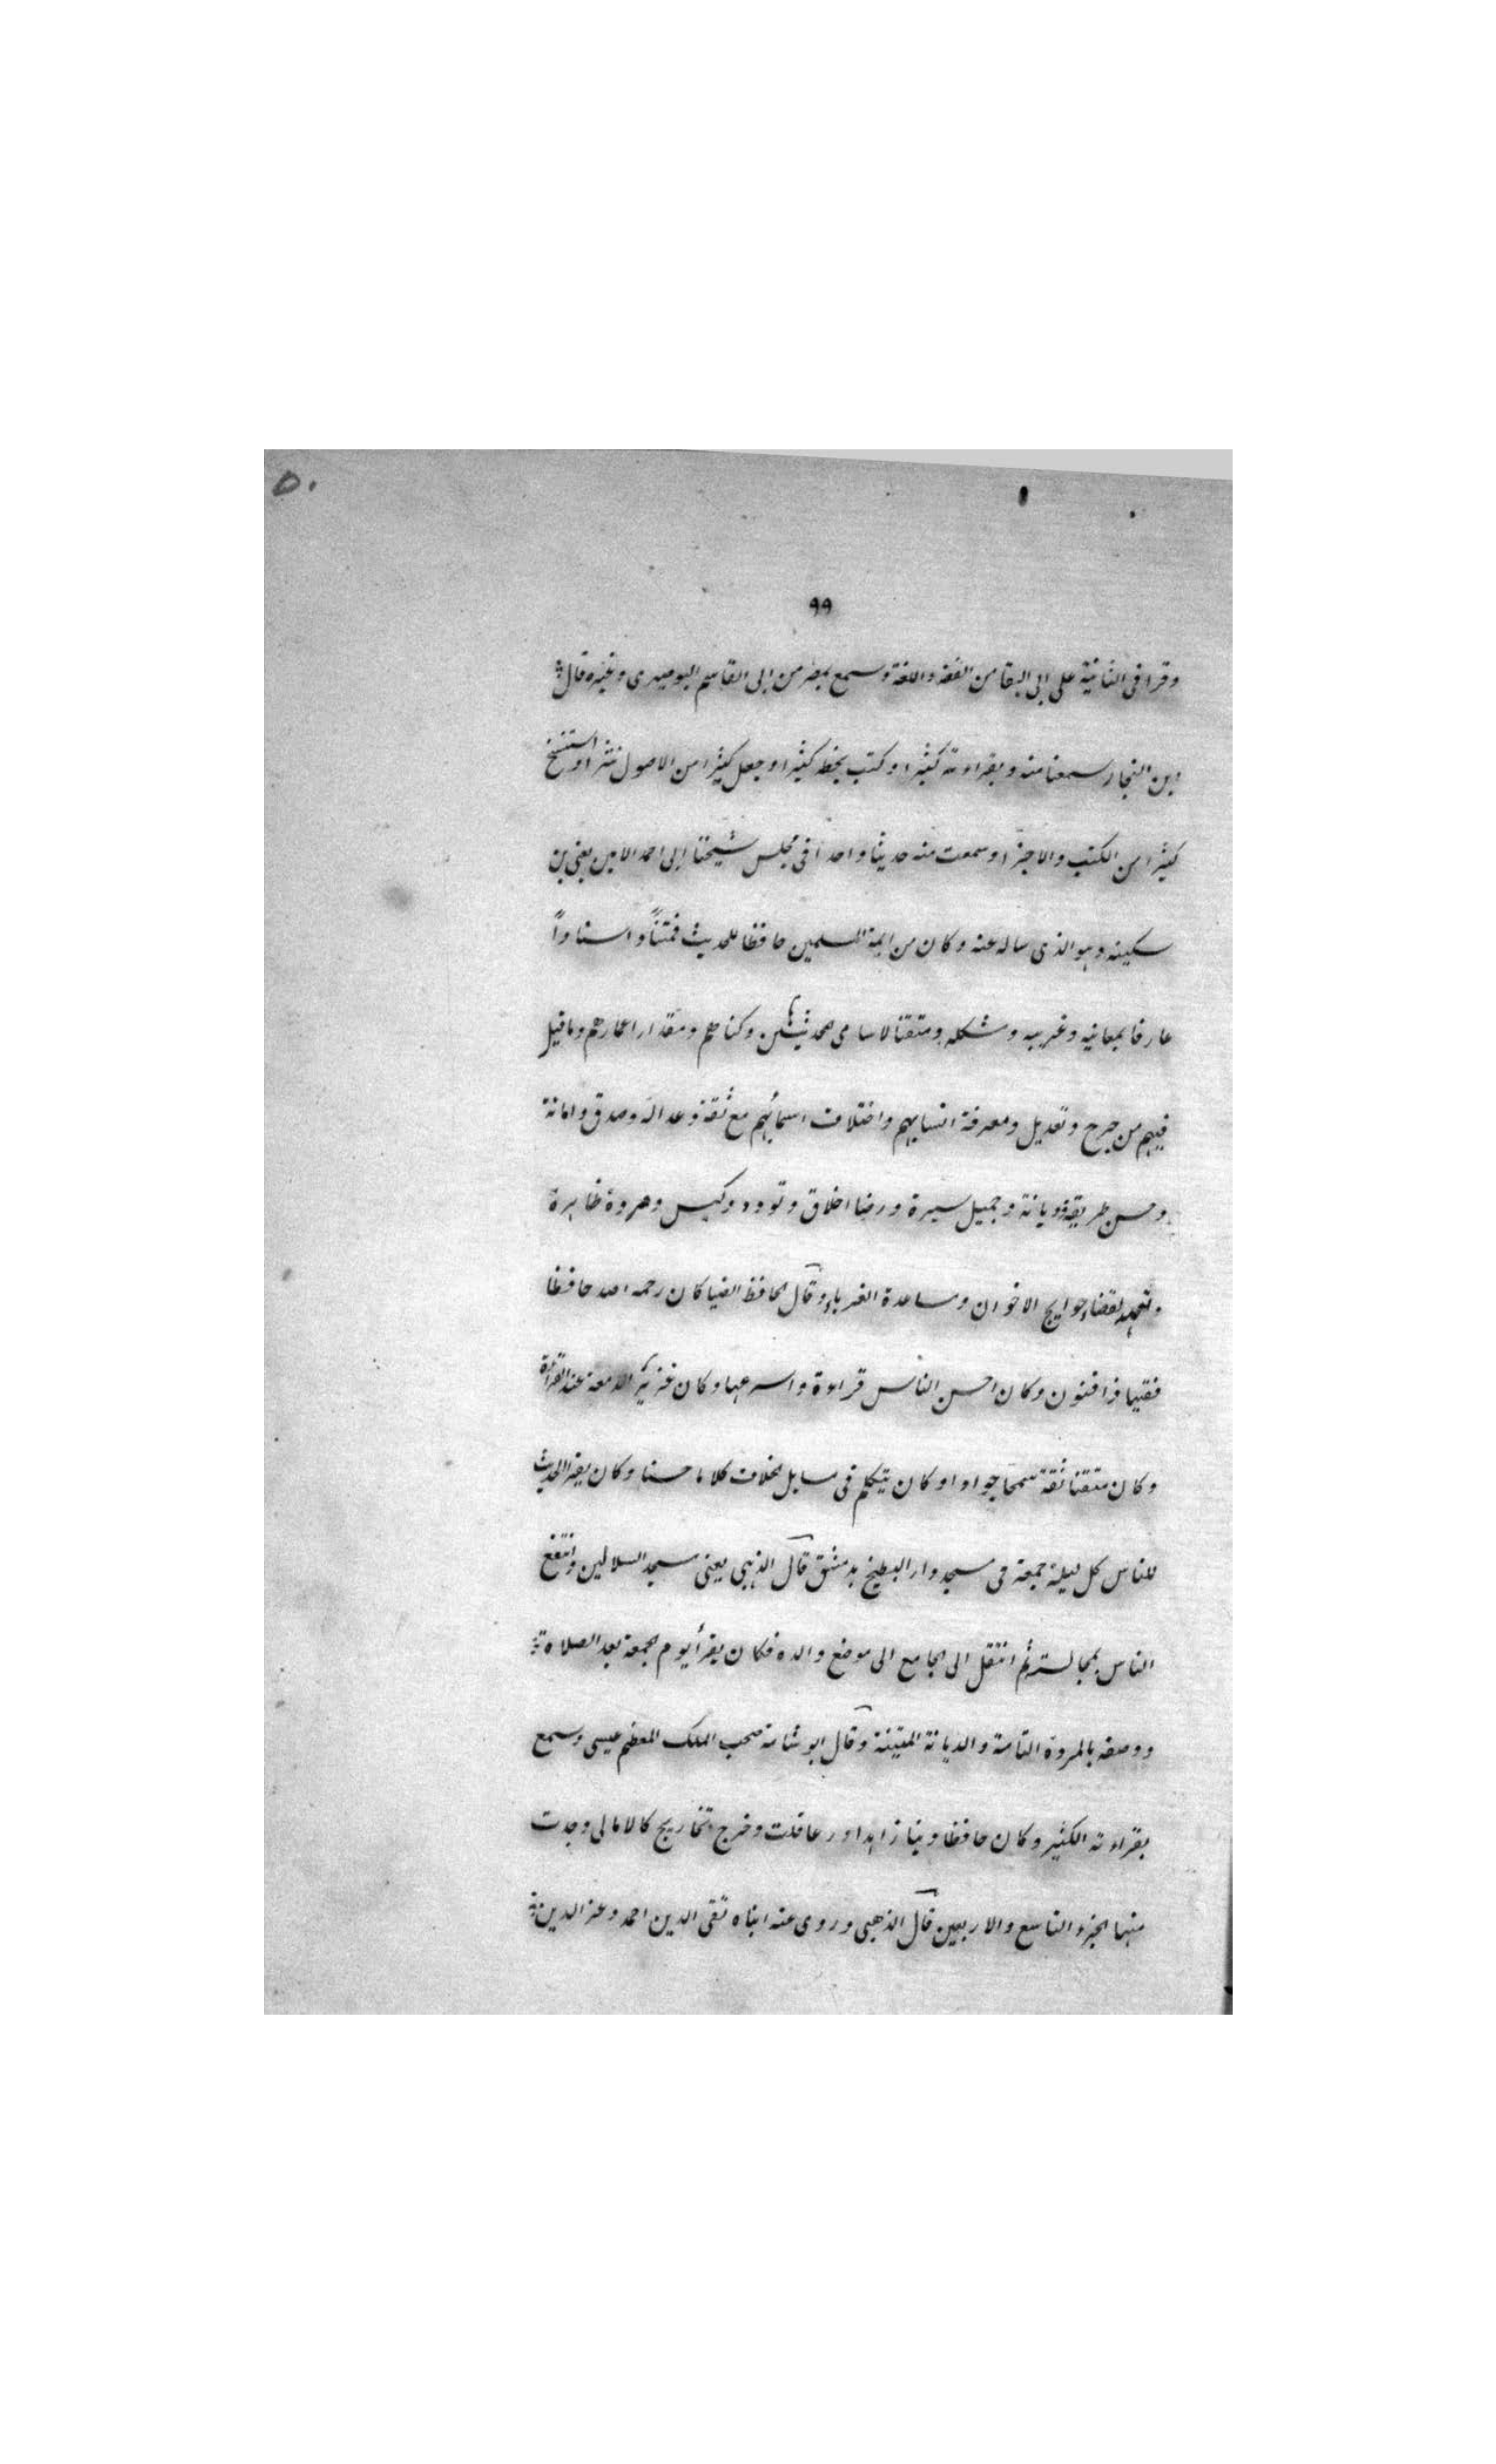 ٥٠
٩٩
وقرا فى الثانية على ابى البقا من الفقه واللغة وسمع بمصر من ابى القاسم البوصيرى وغيره قال
ابن النجار سمعنا منه وبقراءته كثيرا وكتب بخطه كثيرا وجعل كثيرا من الاصول نثرا واستنسخ
كثيرا من الكتب والاجزا وسمعت منه حديثا واحدا فى مجلس شيخنا ابى احمد الامين يعنى بن
سكينه وهو الذى ساله عنه وكان من ايمة المسلمين حافظا للحديث فمتناً واسناداً
عارفا بمعانيه وغريبه ومشكله ومتقنا لاسامى محدثيها وكناهم ومقدار اعمارهم وما قيل
فيهم من جرح وتعديل ومعرفة انسابهم واختلاف اسمائهم مع ثقة وعدالة وصدق وامانة
وحسن طريقة وديانة وجميل سيرة ورضا اخلاق وتودد وكيس ومروة ظاهرة
وتعهد لقضاء حوايج الاخوان ومساعدة الغرباء وقال الحافظ الضيا كان رحمه الله حافظا
فقيها ذا فنون وكان احسن الناس قراءة واسرعها وكان غزير الدمعة عند القراءة
وكان متقنا ثقة سمحا جوادا وكان يتكلم فى مسايل الخلاف كلاما حسنا وكان يقرا الحديث
للناس كل ليلة جمعة فى مسجد دار البطيخ بدمشق قال الذهبى يعنى مسجد السلالين وانتفع
الناس بمجالسته ثم انتقل الى الجامع الى موضع والده فكان يقرأ يوم الجمعة بعد الصلاة
ووصفه بالمروة التامة والديانة المتينة وقال ابو شامة صحب الملك المعظم عيسى وسمع
بقراءته الكثير وكان حافظا دينا زاهدا ورعا قلت وخرج تخاريج كالامالى وجدت
منها الجزء التاسع والاربعين قال الذهبى وروى عنه ابناه تقى الدين احمد وعز الدين